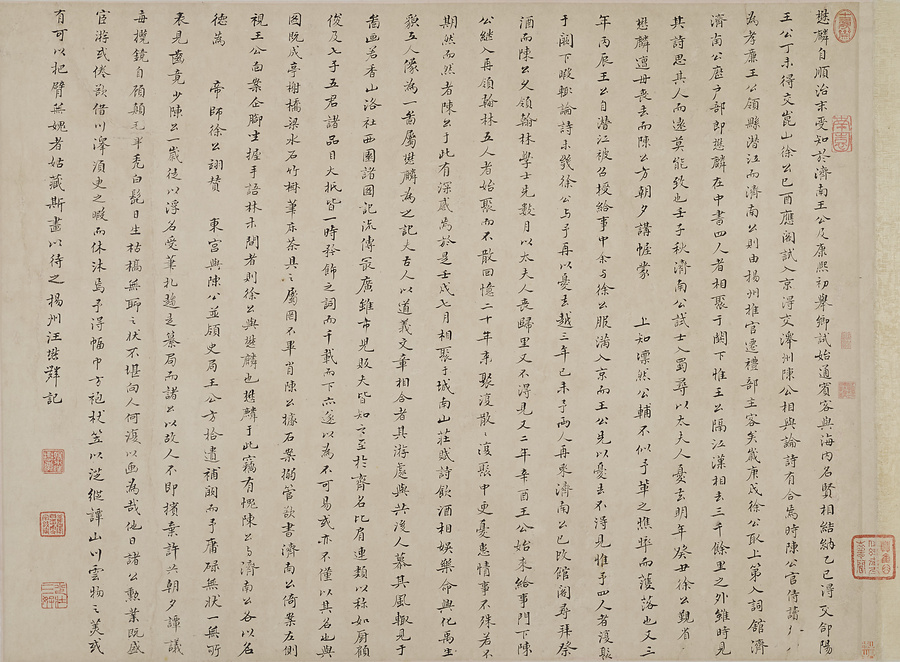 懋麟自順治末受知於濟南王公及康熙初舉鄉試始通賓客與海內名賢相結納乙巳得交郃陽
王公丁未得交崑山徐公己酉應閣試入京得交澤州陳公相與論詩有合焉時陳公官侍讀
為孝廉王公領縣潛江而濟南公則由揚州推官遷禮部主客矣歲庚戌徐公取上第入詞館濟
濟南公歷戶部郎懋麟在中書四人者相聚于闕下惟王公隔江漢相去三千餘里之外雖時見
其詩思其人而遠莫能致也壬子秋濟南公試士入蜀尋以太夫人憂去明年癸丑徐公覲省
懋麟遭母喪去而陳公方朝夕講幄蒙 上知凜然公輔不似予輩之憔悴而濩落也又三
年丙辰王公自潛江被召授給事中余与徐公服滿入京而王公見以憂去不得見惟予四人者復聚
于闕下暇輒論詩未幾徐公与予再以憂去越三年己未予兩人再來濟南公已改館閣尋拜祭
酒而陳公久領翰林學士先數月以太夫人喪歸里又不得見又二年辛酉王公始來給事門下陳
公繼入再領翰林五人者始聚而不散回憶二十年事聚復散〻復聚中更憂患情事不殊若不
期然而然者陳公于此有深感焉於是壬戌七月相聚于城南山莊賦詩飲酒相娛樂命興化禹生
貌五人像為一圖屬懋麟為之記夫古人以道義文章相合者其游處與共後人慕其風輒見于
啚画若香山洛社西園諸圖記流傳最廣雖市兒販夫皆知之至於齊名比肩連類以稱如厨顧
俊及七子五君諸品目大抵皆一時矜飾之詞而千載而下亦遂以為不可易或亦不僅以其名也與
圖既成亭榭橋梁水石竹樹筆床茶具之屬罔不畢肖陳公據石案搦管欲書濟南公倚案左側
視王公面案企脚坐握手語林末閒者則徐公與懋麟也懋麟于此竊有愧陳公与濟南公各以名
德為 帝師徐公翊贊 東宮與陳公並領史局王公方拾遺補闕而予庸碌無狀一無所
表見齒竟少陳公一歲徒以浮名受筆札趨走纂局而諸公以故人不即擯棄許共朝夕譚議
每攬鏡自顧顛毛半禿白髭日生枯槁無聊之狀不堪向人何須以画為哉他日諸公勳業既盛
宦游或倦歸借川澤須臾之暇而休沐焉予得幅巾方袍杖笠以從縱譚山川雲物之美或
有可以把臂無媿者姑藏斯畫以待之揚州汪懋麟記